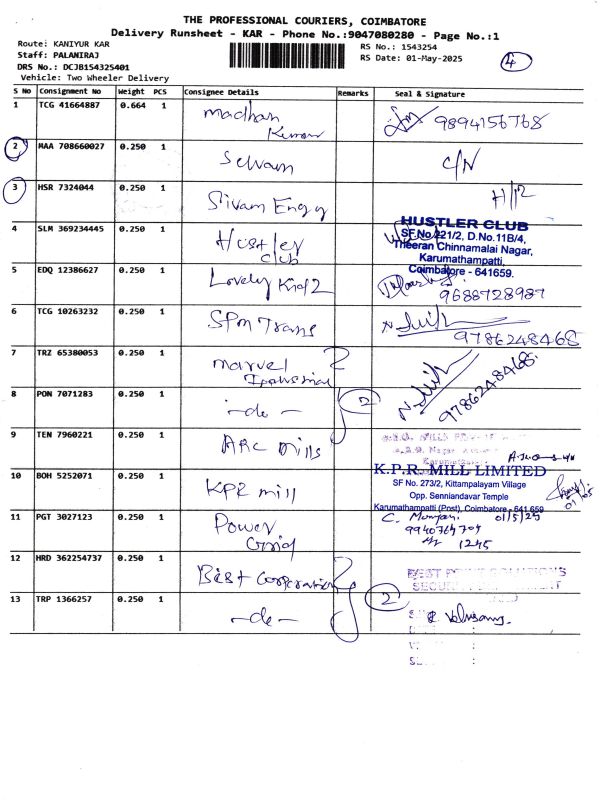 THE PROFESSIONAL COURIERS, COIMBATORE
Delivery Runsheet - KAR - Phone No.:9047080280 - Page No.:1
Route: KANIYUR KAR
RS No.: 1543254
Staff: PALANIRAJ
RS Date: 01-May-2025
4
DRS No.: DCJB154325401
Vehicle: Two Wheeler Delivery
S No Consignment No Weight PCS Consignee Details Remarks Seal & Signature
1 TCG 41664887 0.664 1 Madhan Kumar 9894156768
2 MAA 708660027 0.250 1 Selvam C/N
3 HSR 7324044 0.250 1 Sivam Engg H/R
4 SLM 369234445 0.250 1 Hustler Club
HUSTLER CLUB
SF.No.221/2, D.No.11B/4,
Theeran Chinnamalai Nagar,
Karumathampatti,
Coimbatore - 641659.
5 EDQ 12386627 0.250 1 Lovely Knit 9688728987
6 TCG 10263232 0.250 1 SPM Trans 9786248468
7 TRZ 65380053 0.250 1 Marvel Industrial
8 PON 7071283 0.250 1 -do- 2 9786248468
9 TEN 7960221 0.250 1 ARC Mills
10 BOH 5252071 0.250 1 KPR mill
K.P.R. MILL LIMITED
SF No. 273/2, Kittampalayam Village
Opp. Senniandavar Temple
Karumathampatti (Post), Coimbatore - 641 659
11 PGT 3027123 0.250 1 Power Grid 01/5/25
9940764704
1245
12 HRD 362254737 0.250 1 Best Corporation
13 TRP 1366257 0.250 1 -do- 2